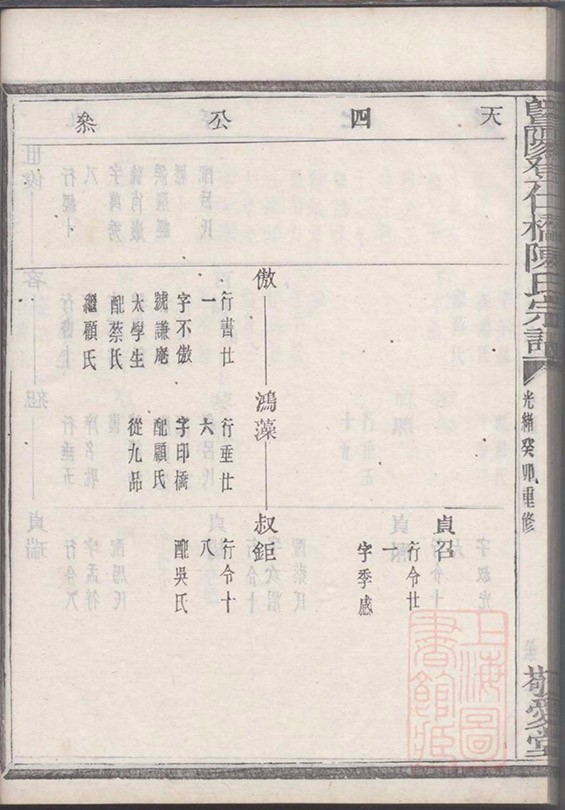 暨陽登仕橋陳氏宗譜
光緒癸卯重修
敬愛堂
天四公粊
貞召
行令廿
一
字季感
傲
行書廿
一
字不傲
號謙庵
太學生
配蔡氏
繼顧氏
鴻藻
行垂廿
六
字印橋
配顧氏
從九品
叔鉅
行令十
八
配吳氏
上海圖書館藏